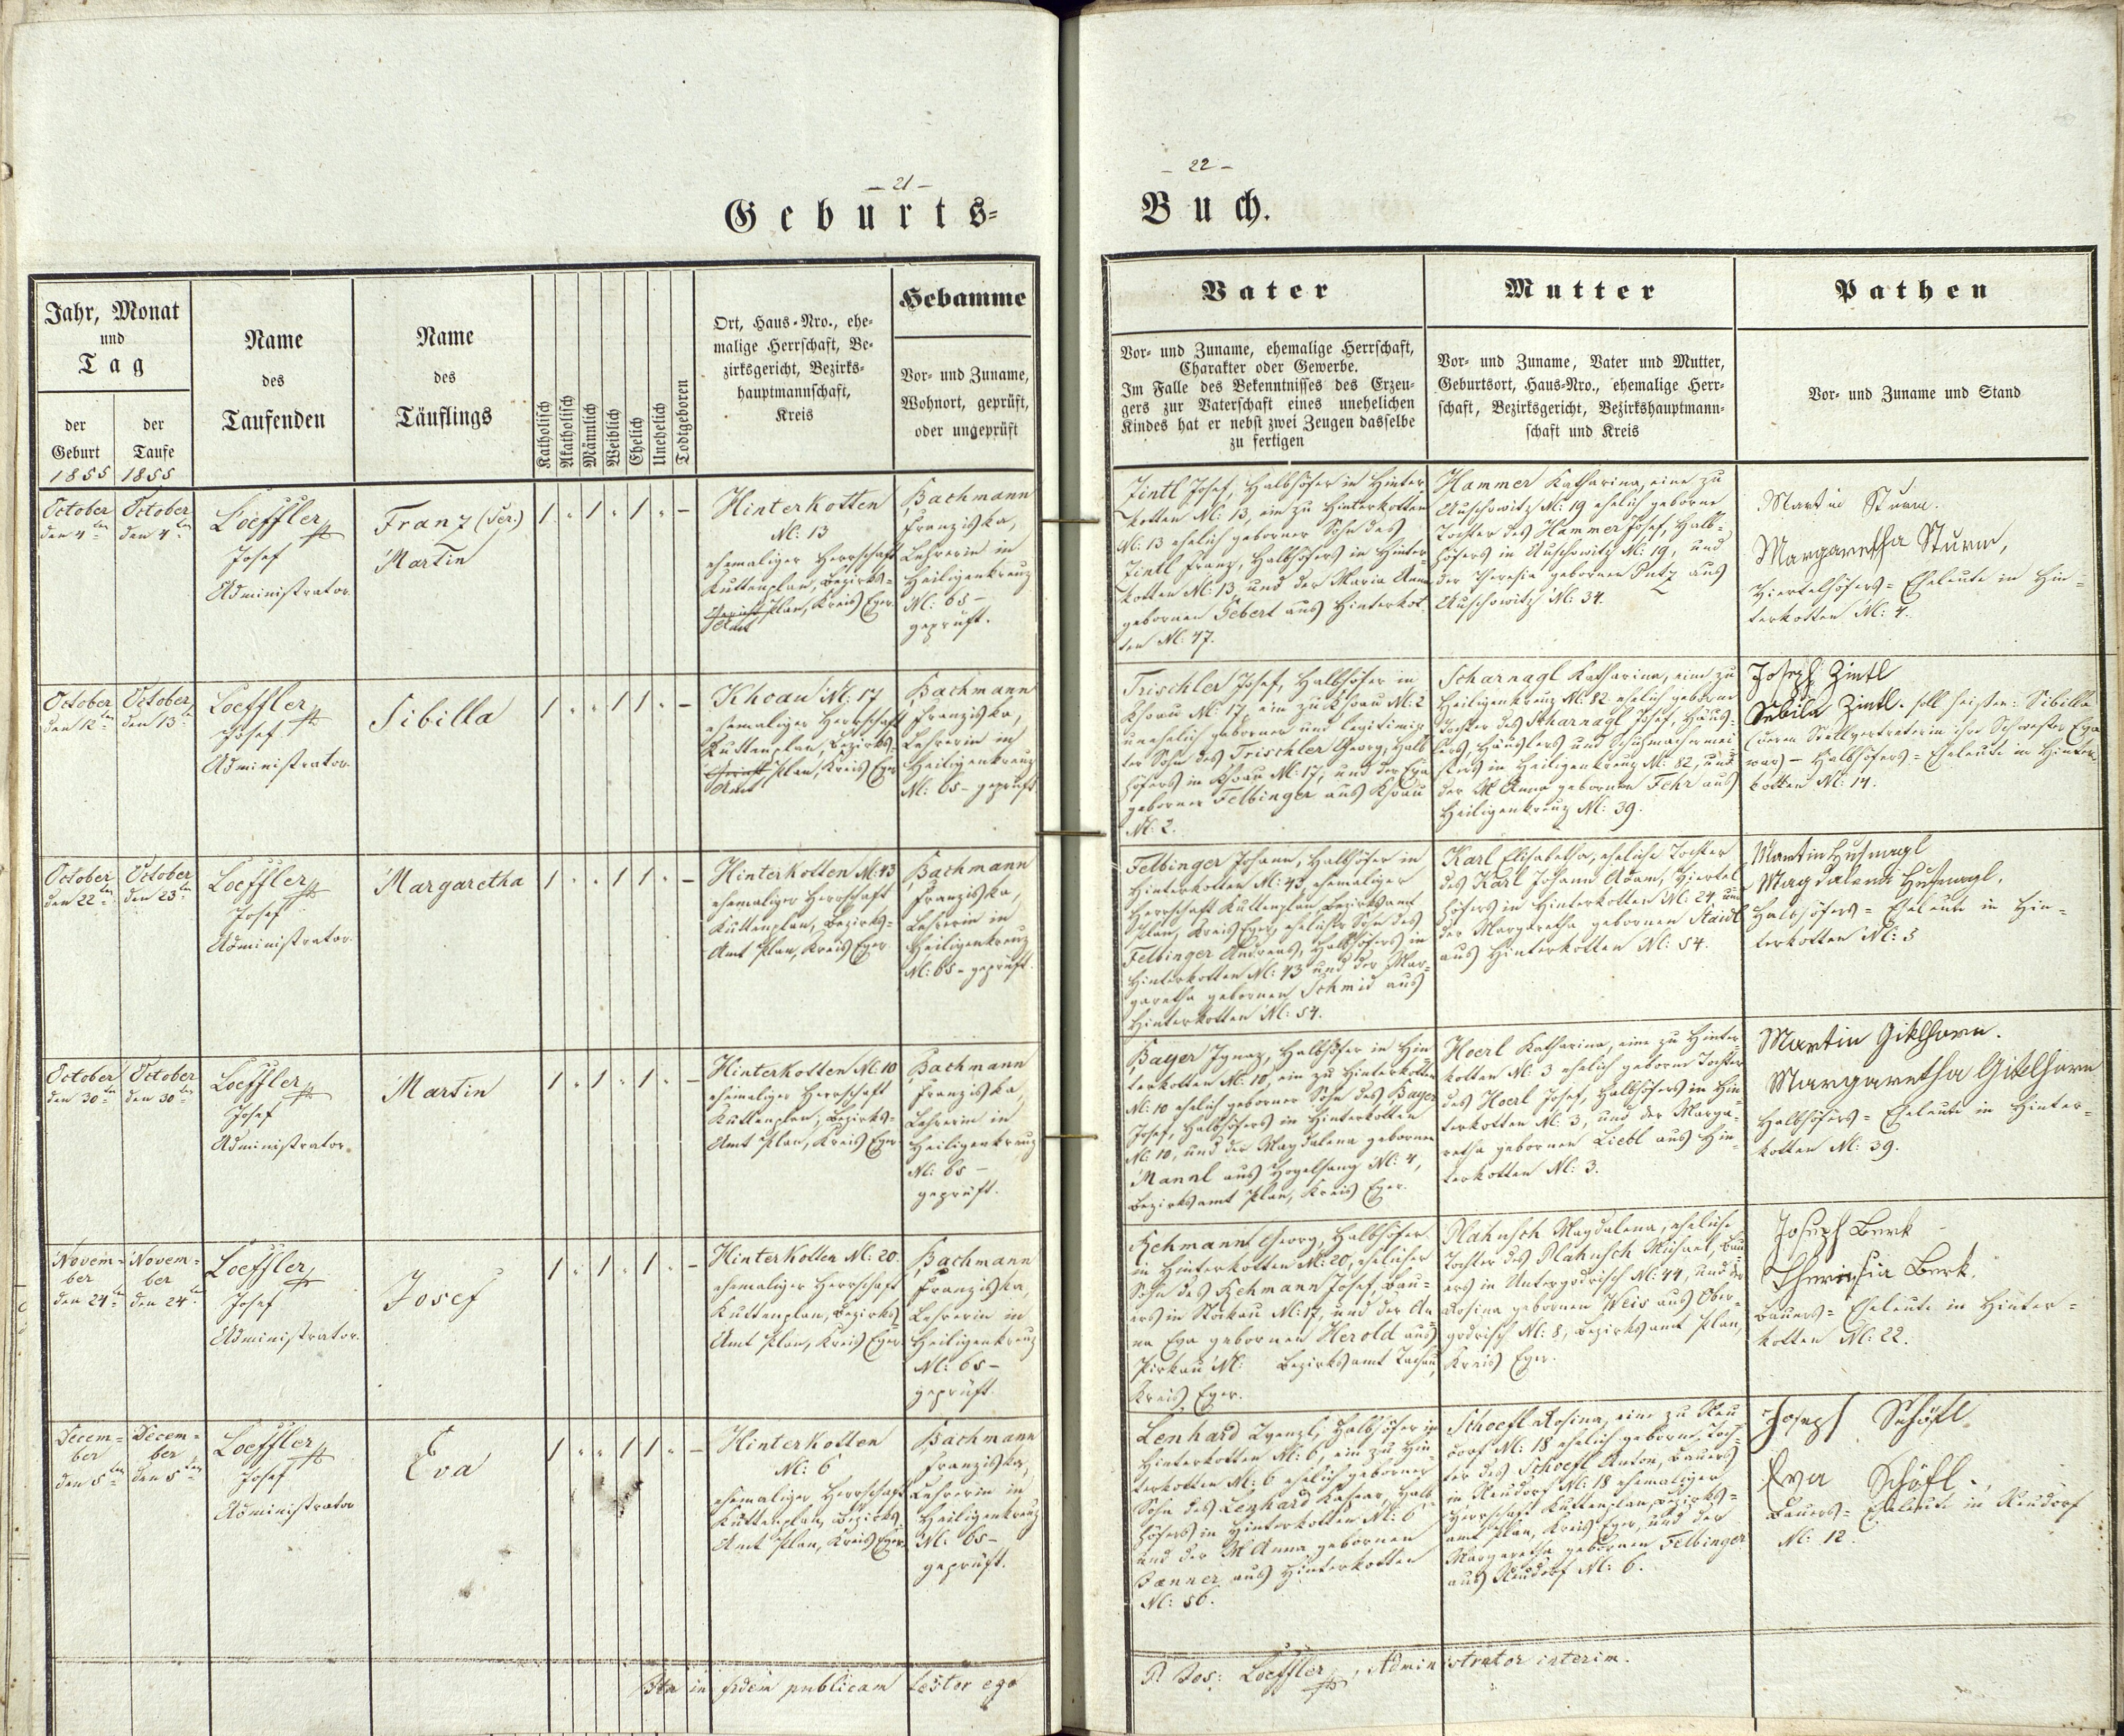 — 21 —
Geburts-
Jahr, Monat
und
Tag
der
Geburt
1855
der
Taufe
1855
Name
des
Taufenden
Name
des
Täuflings
Katholisch
Akatholisch
Männlich
Weiblich
Ehelich
Unehelich
Todtgeboren
Ort, Haus-Nro., ehe-
malige Herrschaft, Be-
zirksgericht, Bezirks-
hauptmannschaft,
Kreis
Hebamme
Vor- und Zuname,
Wohnort, geprüft,
oder ungeprüft
October
den 4ten
October
den 4ten
Loeffler
Josef
Administrator.
Franz (Ser.)
Martin
Hinterkotten
N: 13
ehemaliger Herrschaft
Kuttenplan, Bezirks-
Gericht Plan, Kreis Eger.
Amt
Bachmann
Franziska,
Lehrerin in
Heiligenkreuz
N: 65 –
geprüft.
October
den 12ten
October
den 13ten
Loeffler
Josef
Administrator.
Sibilla
Khoau N: 17
ehemaliger Herrschaft
Kuttenplan, Bezirks-
Gericht Plan, Kreis Eger
Amt
Bachmann
Franziska,
Lehrerin in
Heiligenkreuz
N: 65 – geprüft
October
den 22ten
October
den 23ten
Loeffler
Josef
Administrator.
Margaretha
Hinterkotten N: 43
ehemaliger Herrschaft
Kuttenplan, Bezirks-
Amt Plan, Kreis Eger
Bachmann
Franziska,
Lehrerin in
Heiligenkreuz
N: 65 – geprüft.
October
den 30ten
October
den 30ten
Loeffler
Josef
Administrator.
Martin
Hinterkotten N: 10
ehemaliger Herrschaft
Kuttenplan, Bezirks-
Amt Plan, Kreis Eger.
Bachmann
Franziska,
Lehrerin in
Heiligenkreuz
N: 65 –
geprüft.
Novem-
ber
den 24ten
Novem-
ber
den 24ten
Loeffler
Josef
Administrator.
Josef
Hinterkotten N: 20.
ehemaliger Herrschaft
Kuttenplan, Bezirks-
Amt Plan, Kreis Eger.
Bachmann
Franziska,
Lehrerin in
Heiligenkreuz
N: 65 –
geprüft.
Decem-
ber
den 5ten
Decem-
ber
den 5ten
Loeffler
Josef
Administrator
Eva
Hinterkotten
N: 6
ehemaliger Herrschaft
Kuttenplan, Bezirks-
Amt Plan, Kreis Eger.
Bachmann
Franziska,
Lehrerin in
Heiligenkreuz
N: 65 –
geprüft.
Ita in fidem publicam testor ego
— 22 —
Buch.
Vater
Vor- und Zuname, ehemalige Herrschaft,
Charakter oder Gewerbe.
Im Falle des Bekenntnisses des Erzeu-
gers zur Vaterschaft eines unehelichen
Kindes hat er nebst zwei Zeugen dasselbe
zu fertigen
Mutter
Vor- und Zuname, Vater und Mutter,
Geburtsort, Haus-Nro., ehemalige Herr-
schaft, Bezirksgericht, Bezirkshauptmann-
schaft und Kreis
Pathen
Vor- und Zuname und Stand
Zintl Josef, Halbhöfer in Hinter
kotten N: 13, ein zu Hinterkotten
N: 13 ehelich geborner Sohn des
Zintl Franz, Halbhöfers in Hinter-
kotten N: 13, und der Maria Anna
gebornen Gebert aus Hinterkot
ten N: 47.
Hammer Katharina, eine zu
Auschowitz N: 19 ehelich geborne
Tochter des Hammer Josef, Halb-
höfers in Auschowitz N: 19, und
der Theresia gebornen Putz aus
Auschowitz N: 34.
Martin Sturm.
Margaretha Sturm,
Viertelhöfers-Eheleute in Hin-
terkotten N: 4.
Trischler Josef, Halbhöfer in
Khoau N: 17, ein zu Khoau N: 2
unehelich geborner und legitimir
ter Sohn des Trischler Georg, Halb
höfers in Khoau N: 17, und der Eva
gebornen Felbinger aus Khoau
N: 2.
Scharnagl Katharina, eine zu
Heiligenkreuz N: 82 ehelich geborne
Tochter des Scharnagl Josef, Häus-
lers, und Schuhmachermei
sters in Heiligenkreuz N: 82, und
der M Anna gebornen Fehr aus
Heiligenkreuz N: 39.
Joseph Zintl
Sebila Zintl. soll heißen: Sibilla
(deren Stellvertreterin ihre Schwester Eva
war) – Halbhöfers-Eheleute in Hinter
kotten N: 14.
Felbinger Johann, Halbhöfer in
Hinterkotten N: 43, ehemaliger
Herrschaft Kuttenplan, Bezirksamt
Plan, Kreis Eger, ehelicher Sohn des
Felbinger Andreas, Halbhöfers in
Hinterkotten N: 43 und der Mar-
garetha gebornen Schmid aus
Hinterkotten N: 54.
Karl Elisabetha, eheliche Tochter
des Karl Johann Adam, Viertel
höfers in Hinterkotten N: 24 und
der Margaretha gebornen Staidl
aus Hinterkotten N: 54.
Martin Hufnagl
Magdalena Hufnagl,
Halbhöfers-Eheleute in Hin-
terkotten N: 5
Bayer Ignaz, Halbhöfer in Hin
terkotten N: 10, ein zu Hinterkotten
N: 10 ehelich geborner Sohn des Bayer
Josef, Halbhöfers in Hinterkotten
N: 10, und der Magdalena gebornen
Mannl aus Vogelsang N: 4,
Bezirksamt Plan, Kreis Eger.
Hoerl Katharina, eine zu Hinter-
kotten N: 3 ehelich geborne Tochter
des Hoerl Josef, Halbhöfers in Hin-
terkotten N: 3, und der Marga-
retha gebornen Liebl aus Hin-
terkotten N: 3.
Martin Giklhorn.
Margaretha Gikelhorn
Halbhöfers-Eheleute in Hinter-
kotten N: 39.
Rehmann Georg, Halbhöfer
in Hinterkotten N: 20, ehelicher
Sohn des Rehmann Josef, Bau-
ers in Stockau N: 17, und der An
na Eva gebornen Herold aus
Pirkau N: Bezirksamt Tachau,
Kreis Eger.
Plahusch Magdalena, eheliche
Tochter des Plahusch Michael, Bau
ers in Untergodrisch N: 44, und der
Rosina gebornen Weis aus Ober-
godrisch N: 8, Bezirksamt Plan,
Kreis Eger.
Joseph Berk
Theresia Berk.
Bauers-Eheleute in Hinter-
kotten N: 22.
Lenhard Wenzl, Halbhöfer in
Hinterkotten N: 6, ein zu Hin-
terkotten N: 6 ehelich geborner
Sohn des Lenhard Kaspar, Halb-
höfers in Hinterkotten N: 6
und der M Anna gebornen
Janner aus Hinterkotten
N: 56.
Schoefl Rosina, eine zu Neu
dorf N: 18 ehelich geborne Toch-
ter des Schoefl Anton, Bauers
in Neudorf N: 18 ehemaliger
Herrschaft Kuttenplan, Bezirks-
amt Plan, Kreis Eger, und der
Margaretha gebornen Felbinger
aus Neudorf N: 6.
Joseph Schöfl.
Eva Schöfl.
Bauers-Eheleute in Neudorf
N: 12.
P. Jos: Loeffler, Administrator interim.